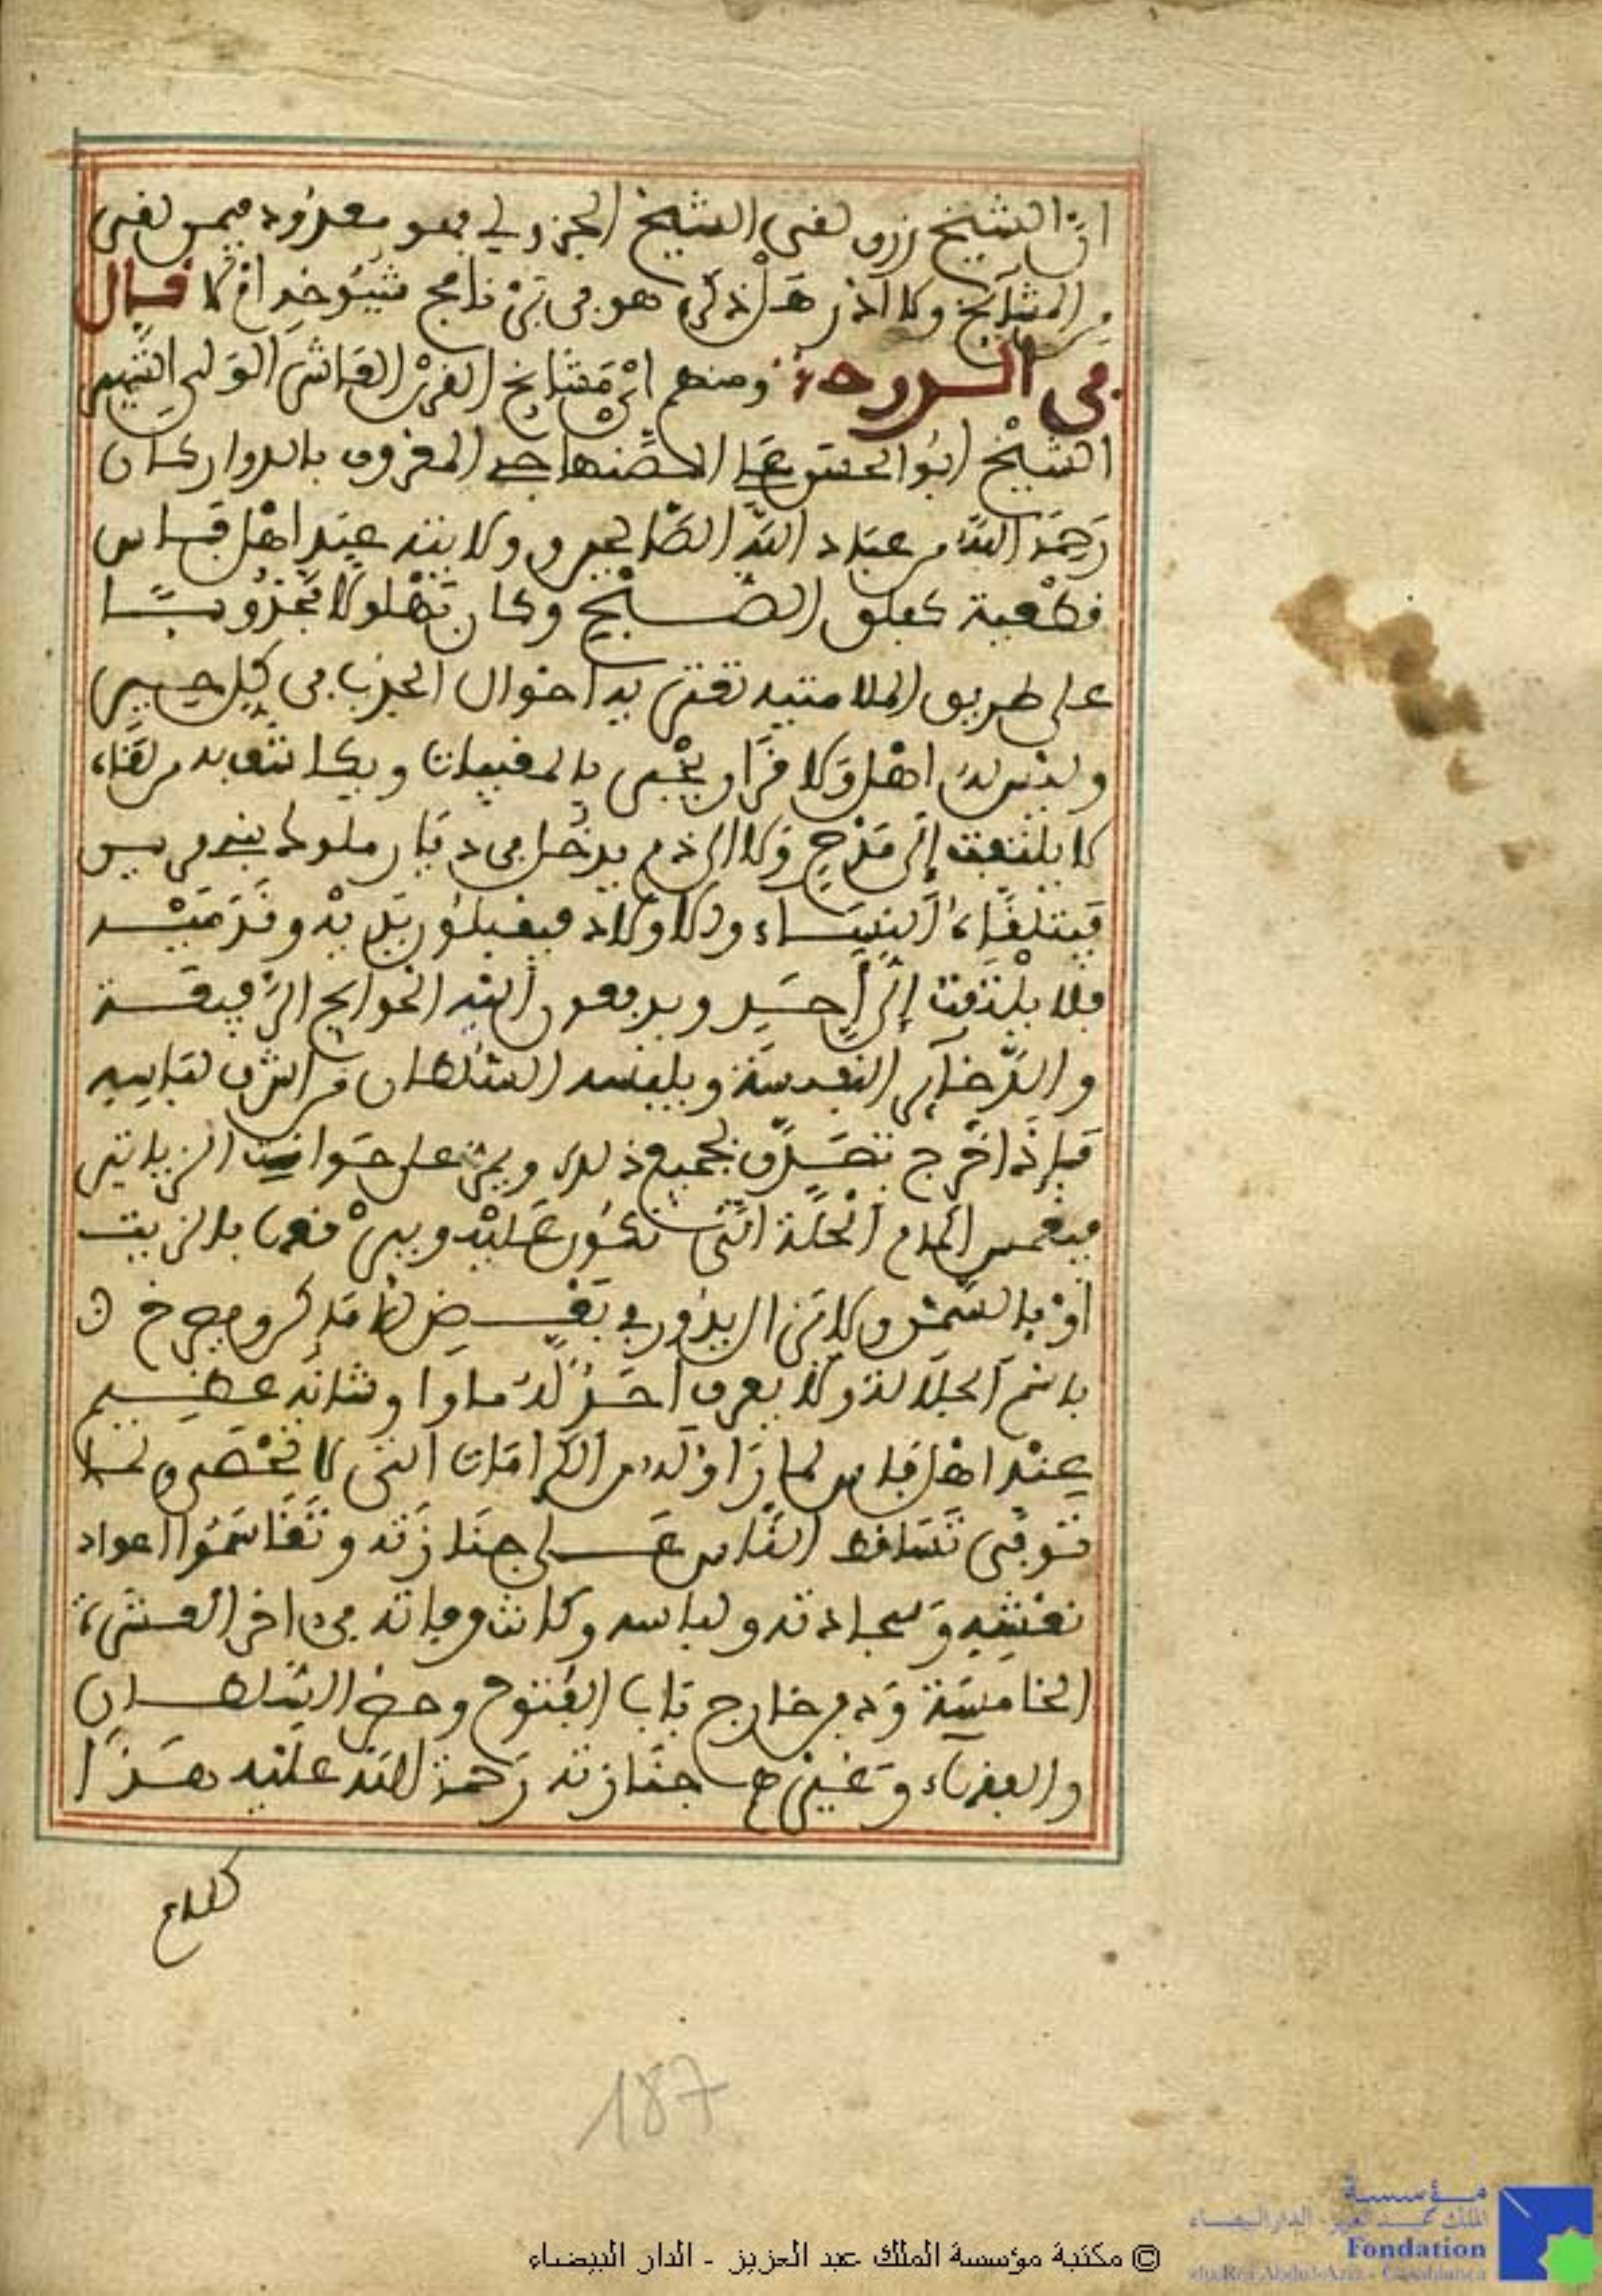 ان الشيخ زروق لقي الشيخ الجزولي فهو معدود فيمن لقي
من المشايخ ولا أذكر هل ذكره هو في برنامج شيوخه أم لا قال
في الدوحة ومنهم أي مشايخ القرن العاشر الولي الشهير
الشيخ أبو الحسن علي الصنهاجي المعروف بالدوار كان
رحمه الله من عباد الله الصالحين وولايته عند أهل فاس
قطعية كفلق الصبح وكان بهلولا مجذوبا
على طريق الملامتية تعتريه أحوال الجذب في كل حين
وليس له أهل ولا قرار يخبر بالمغيبات ويكاشف به من لقاه
لا يلتفت إلى مدح ولا إلى ذم يدخل في ديار ملوك بني مرين
فيتلقاه النساء والأولاد فيقبلون يديه وقدميه
فلا يلتفت إلى أحد ويدفعون إليه الحوائج الرفيعة
والذخائر النفيسة ويلبسه السلطان من أشرف لباسه
فإذا خرج تصدق بجميع ذلك ويمر على حوانيت الزياتين
فيغمس أكمام الحلة التي تكون عليه ويبرقعها بالزيت
أو بالسمن ولا يزال يدور في بعض الأماكن ويصرخ
باسم الجلالة ولا يعرف أحد له مأوا وشأنه عظيم
عند أهل فاس لما رأوا له من الكرامات التي لا تحصى ولما
توفي تساقط الناس على جنازته وتقاسموا أعواد
نعشه وسجادته ولباسه وكانت وفاته في أخر العشرة
الخامسة ودفن خارج باب الفتوح وحضر السلطان
والفقهاء وغيرهم جنازته رحمة الله عليه هذا
كلام
187
© مكتبة مؤسسة الملك عبد العزيز - الدار البيضاء
مؤسسة
الملك عبد العزيز - الدار البيضاء
Fondation
du Roi Abdul-Aziz - Casablanca